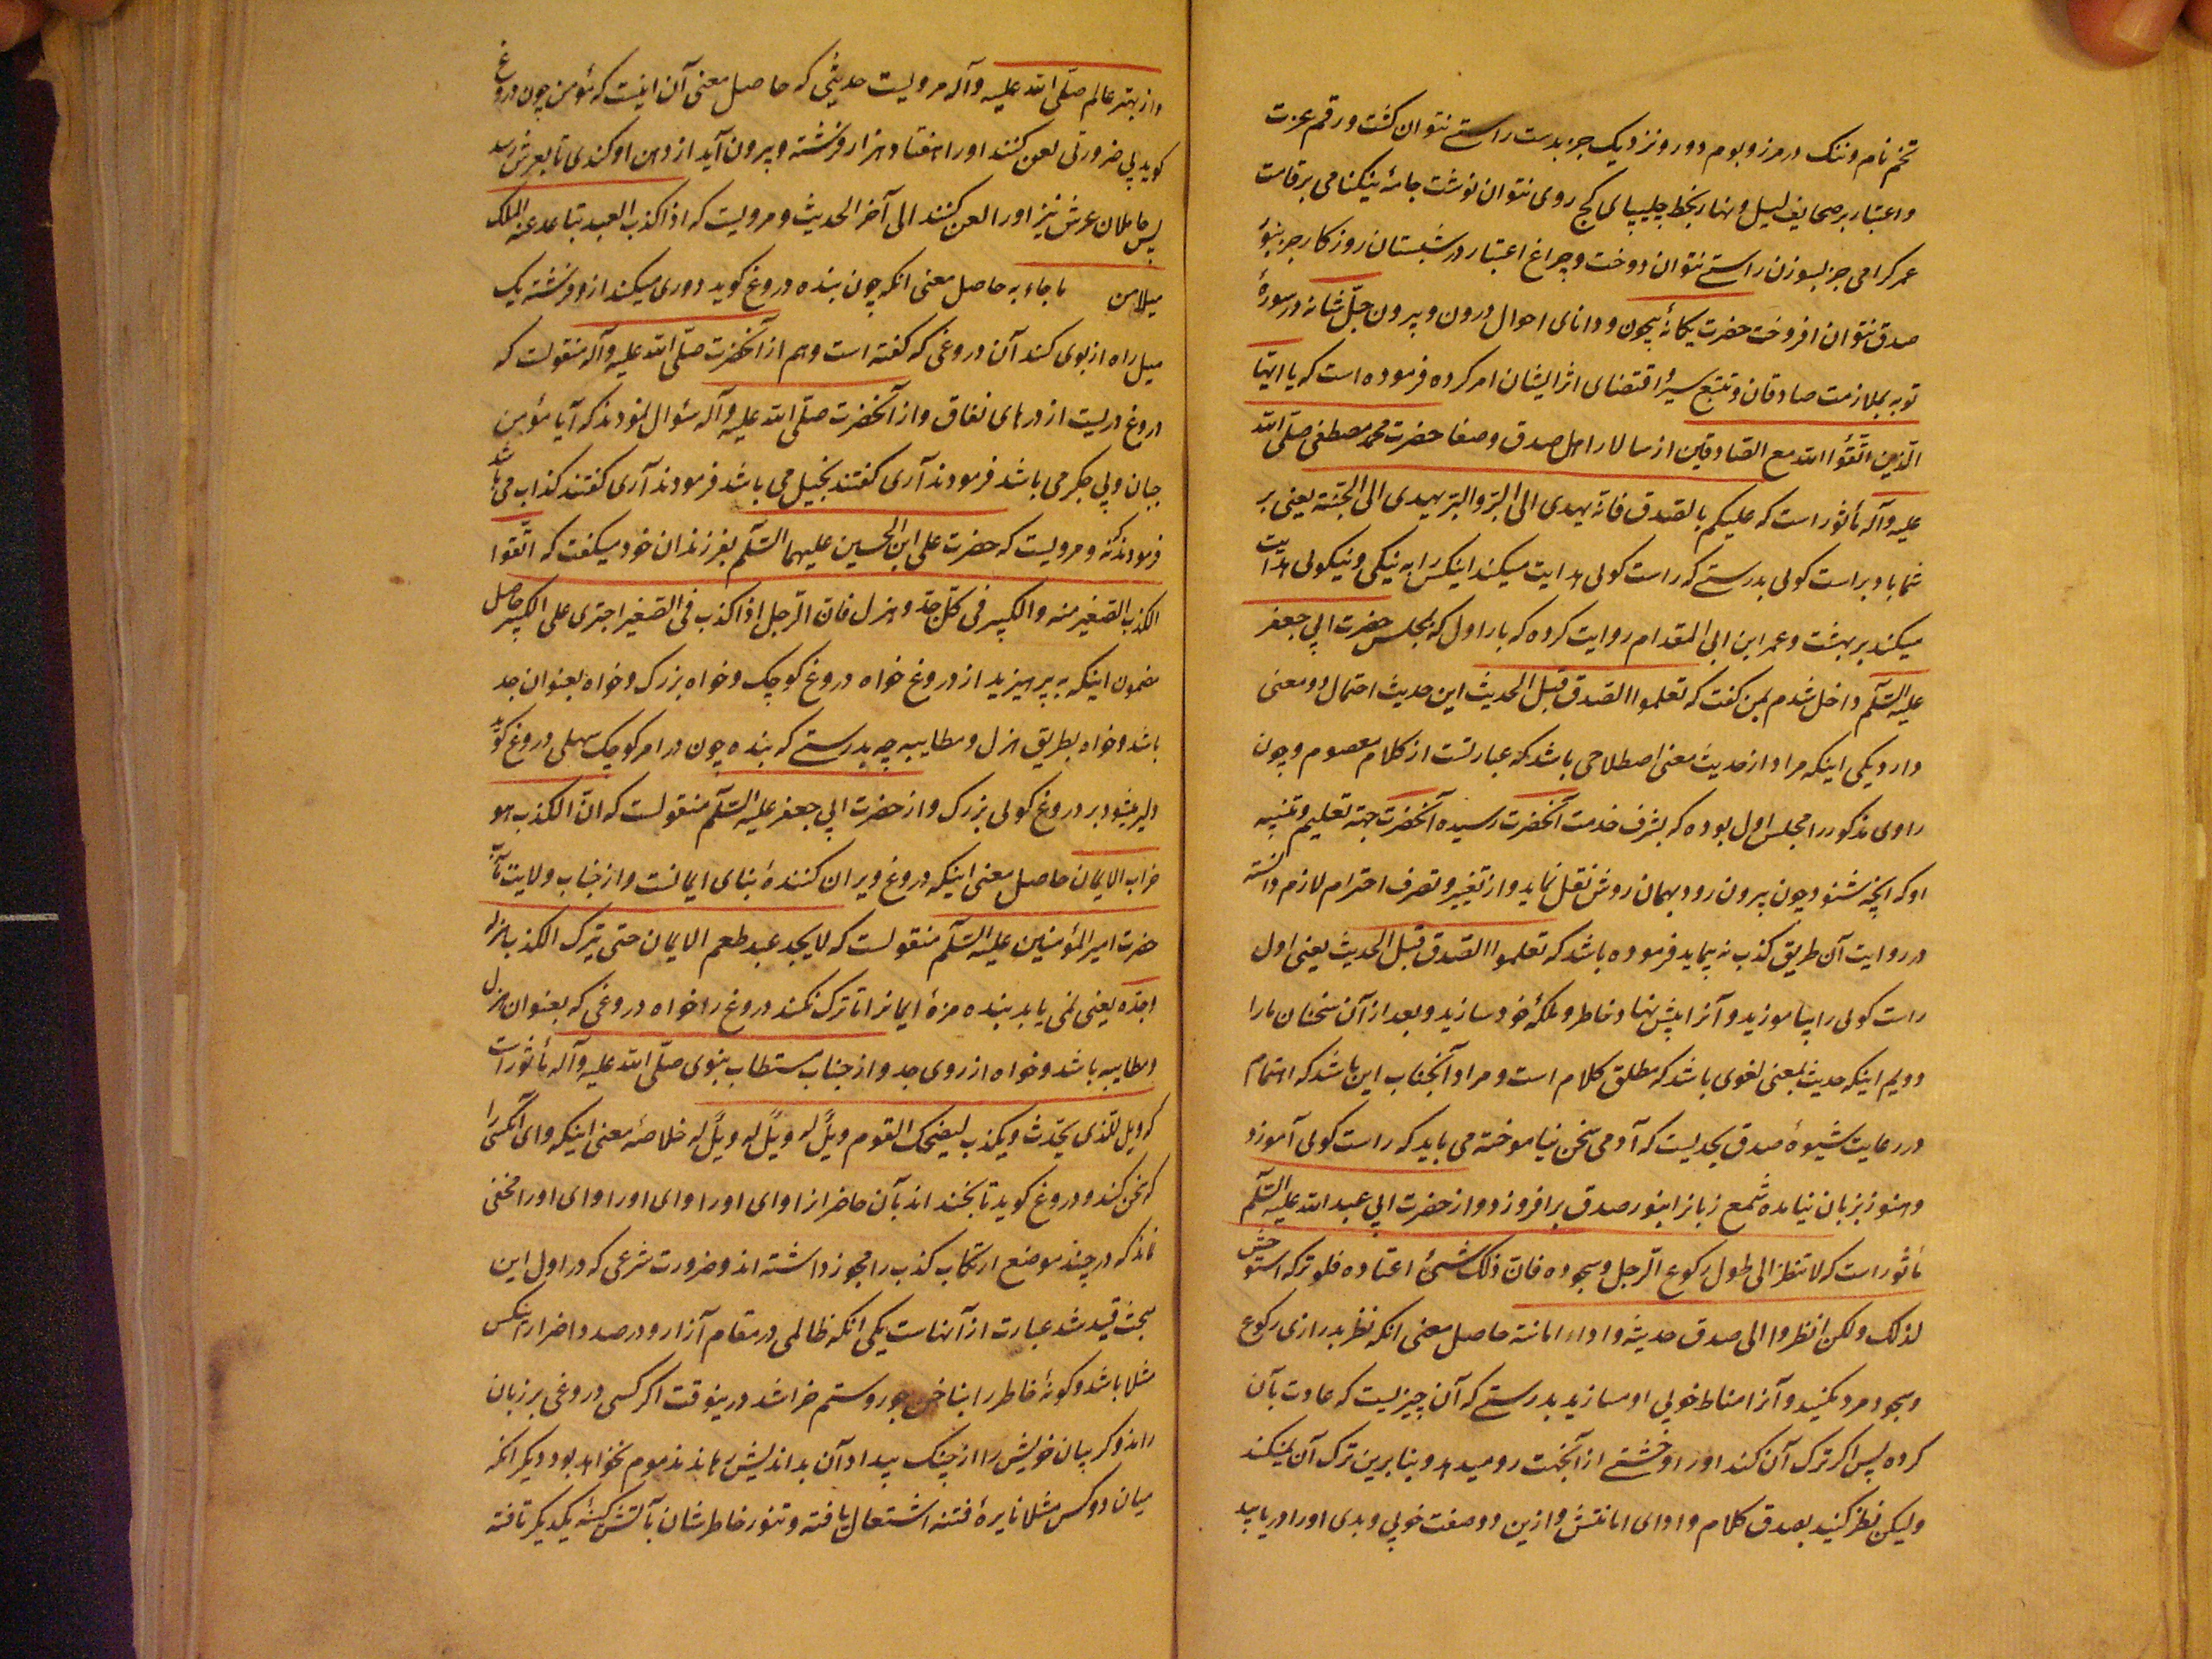 تخم نام و ننک در مرز و بوم دور و نزدیک جز بدست راستے نتوان کشت و رقم عزت
و اعتبار بر صحایف لیل و نهار بخط چلیپای کج روی نتوان نوشت جامۀ نیکنامی بر قامت
عمر کرامی جز بسوزن راستے نتوان دوخت و چراغ اعتبار در شبستان روزکار جز بنور
صدق نتوان افروخت حضرت یکانۀ بیچون و دانای احوال درون و بیرون جلّ شانه در سورۀ
توبه بملازمت صادقان و تتبع سیر و اقتضای اثر ایشان امر کرده فرموده است که یا ایّها
الّذین اتّقوا الله مع الصّادقین از سالار اهل صدق و صفا حضرت محمد مصطفی صلّی الله
علیه و آله مأثور است که علیکم بالصّدق فانّه یهدی الی البرّ و البرّ یهدی الی الجنّة یعنی بر
شما باد بر است کوئی بدرستے که راست کوئی هدایت میکند اینکس را به نیکی و نیکوئی هدایت
میکند بر بهشت و عمر ابن ابی المقدام روایت کرده که بار اول که بمجلس حضرت ابی جعفر
علیه السّلم داخل شدم بمن کفت که تعلموا الصّدق قبل الحدیث این حدیث احتمال دو معنی
دارد یکی اینکه مراد از حدیث معنی اصطلاحی باشد که عبارتست از کلام معصوم و چون
راوی مذکور را مجلس اول بوده که بشرف خدمت آنحضرت رسیده آنحضرت جهة تعلیم و تنبیه
او که انچه شنود چون بیرون رود بهمان روش نقل نماید و از تغییر و تصرف احترام لازم دانسته
در روایت آن طریق کذب نه پیماید فرموده باشد که تعلموا الصّدق قبل الحدیث یعنی اول
راست کوئی را بیاموزید و آنرا پیش نهاد خاطر و ملکۀ خود سازید و بعد از آن سخنان ما را
دویم اینکه حدیث بمعنی لغوی باشد که مطلق کلام است و مراد آنجناب این باشد که اهتمام
در رعایت شیوۀ صدق بحدیست که آدمی سخن نیاموخته می باید که راست کوئی آموزد
و هنوز بزبان نیامده شمع زبانرا بنور صدق برافروزد و از حضرت ابی عبد الله علیه السّلم
مأثور است که لا تنظر الی طول رکوع الرّجل و سجوده فانّ ذلک شئ اعتاده فلو ترکه استوحش
لذلک و لکن انظروا الی صدق حدیثه و اداء امانته حاصل معنی انکه نظر بدرازی رکوع
و سجود مرد مکنید و آنرا مناط خوبی او مسازید بدرستے که آن چیزیست که عادت بآن
کرده پس اکر ترک آن کند او را وحشتے از آنجهت رو میدهد و بنابرین ترک آن نمیکند
و لیکن نظر کنید بصدق کلام و ادای امانتش و ازین دو صفت خوبی و بدی او را دریابید
و از بهتر عالم صلّی الله علیه و آله مرویست حدیثی که حاصل معنی آن اینست که مؤمن چون دروغ
کوید بی ضرورتی لعن کنند او را هفتاد هزار فرشته و بیرون آید از دهن او کندی تا بعرش رسد
پس حاملان عرش نیز او را لعن کنند الی آخر الحدیث و مرویست که اذا کذب العبد تباعد عنه الملک
میلا من ما جاء به حاصل معنی انکه چون بنده دروغ کوید دوری میکند ازو فرشته یک
میل راه از بوی کند آن دروغی که کفته است و هم از آنحضرت صلّی الله علیه و آله منقولست که
دروغ دریست از درهای نفاق و از آنحضرت صلّی الله علیه و آله سئوال نمودند که آیا مؤمن
جبان و بی جکر می باشد فرمودند آری کفتند بخیل می باشد فرمودند آری کفتند کذاب می باشد
فرمودند که نه و مرویست که حضرت علی ابن الحسین علیهما السّلم بفرزندان خود میکفت که اتّقوا
الکذب الصّغیر منه و الکبیر فی کلّ جدّ و هزل فانّ الرّجل اذا کذب فی الصّغیر اجتری علی الکبیر حاصل
مضمون اینکه به پرهیزید از دروغ خواه دروغ کوچک و خواه بزرک و خواه بعنوان جد
باشد و خواه بطریق هزل و مطایبه چه بدرستے که بنده چون در امر کوچک سهلی دروغ کوید
دلیر میشود بر دروغ کوئی بزرک و از حضرت ابی جعفر علیه السّلم منقولست که انّ الکذب هو
خراب الایمان حاصل معنی اینکه دروغ ویران کنندۀ بنای ایمانست و از جناب ولایت مآب
حضرت امیر المؤمنین علیه السّلم منقولست که لا یجد عبد طعم الایمان حتی یترک الکذب هزله
و جدّه یعنی نمی یابد بنده مزۀ ایمانرا تا ترک نکند دروغ را خواه دروغی که بعنوان هزل
و مطایبه باشد و خواه از روی جد و از جناب مستطاب نبوی صلّی الله علیه و آله مأثور است
که ویل للّذی یحدّث و یکذب لیضحک القوم ویلٌ له ویلٌ له ویلٌ له خلاصۀ معنی اینکه وای آنکس را
که سخن کند و دروغ کوید تا بخنداند بآن حاضرانرا وای او را وای او را وای او را مخفی
نماند که در چند موضع ارتکاب کذب را مجوز داشته اند و ضرورت شرعی که در اول این
بحث قید شد عبارت از آنهاست یکی انکه ظالمی در مقام آزار و در صدد اضرار اینکس
مثلا باشد و کونۀ خاطر را بناخن جور و ستم خراشد درینوقت اکر کسی دروغی بر زبان
راند و کریبان خویش را از چنک بیداد آن بد اندیش رهاند مذموم نخواهد بود دیکر انکه
میان دو کس مثلا نایرۀ فتنه اشتعال یافته و تنور خاطرشان بآتش کینۀ یکدیکر تافته